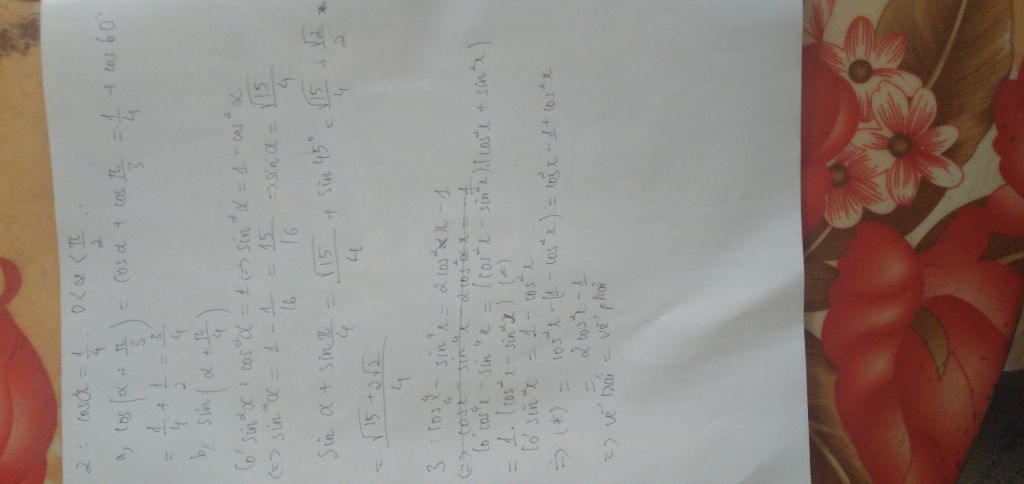 2 : cosα = 1/4 ; 0 < α < π/2 .
a, cos(α + π/3) = cosα + cos π/3 = 1/4 + cos 60°
= 1/4 + 1/2 = 3/4
b, sin(α + π/4)
Có sin²α + cos²α = 1 (=> sin²α = 1 - cos²α
(=> sin²α = 1 - 1/16 = 15/16 => sinα = √15/4
Sin α + sin π/4 = √15/4 + sin 45° = √15/4 + √2/2
= √15 + 2√2 / 4
3 : cos⁴x - sin⁴x = 2cos²x - 1
(=> cos⁴x - sin⁴x - 2cos²x = -1
Có cos⁴x - sin⁴x = (cos²x - sin²x).(cos²x + sin²x)
= 1. (cos²x - sin²x) (*)
Có sin²x = 1 - cos²x
=> (*) = cos²x - (1 - cos²x) = cos²x - 1 + cos²x
= 2cos²x - 1
=> vế trái = vế phải